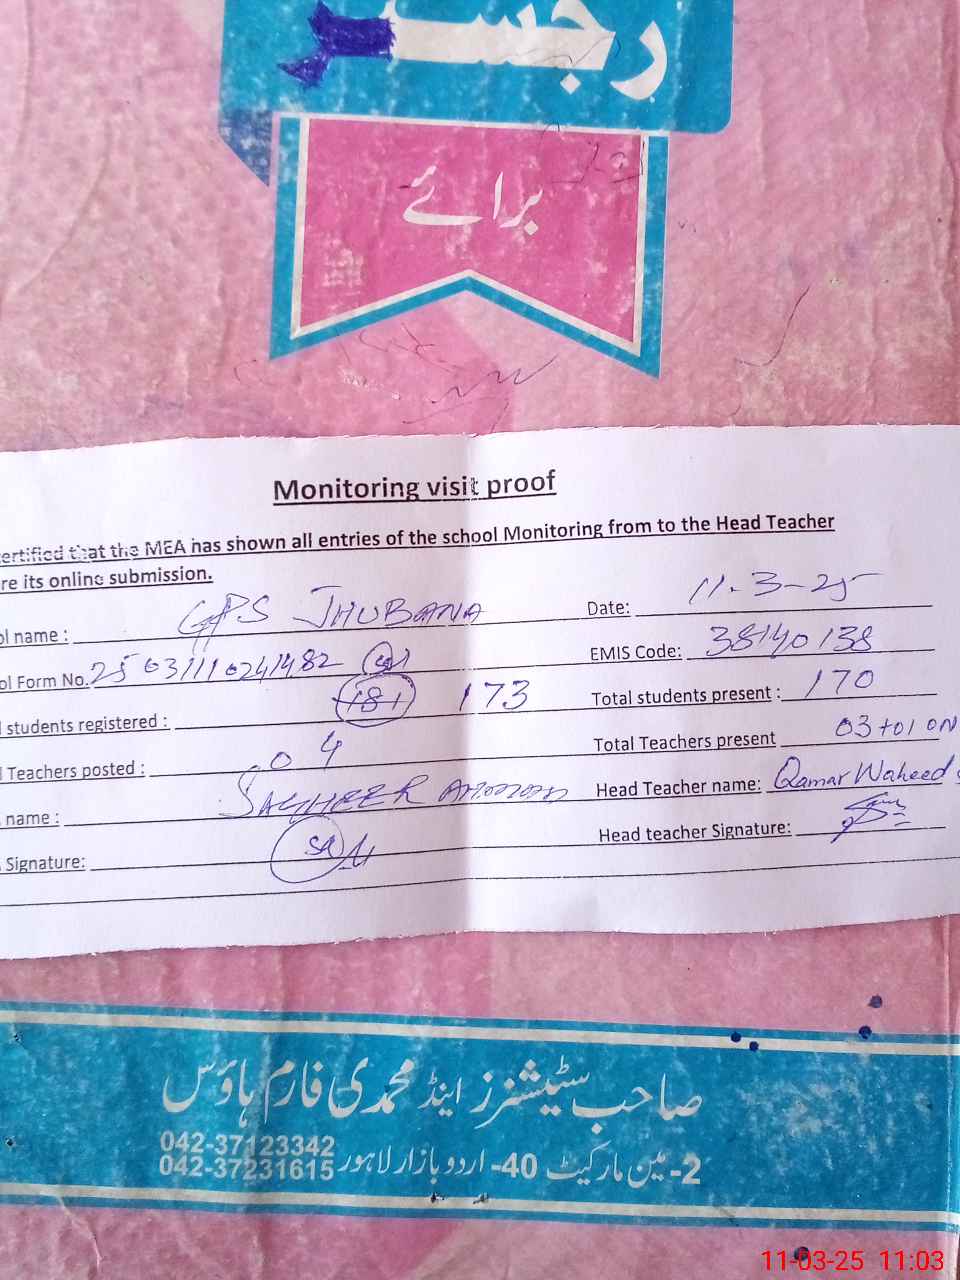 رجسٹر
برائے
Monitoring visit proof
ertified that the MEA has shown all entries of the school Monitoring from to the Head Teacher
re its online submission.
ol name : GPS JHUBANA Date: 11-3-25
ol Form No. 25 031110241482 EMIS Code: 38140138
l students registered : 181 173 Total students present : 170
l Teachers posted : 04 Total Teachers present 03+01 ON
name : SAGHEER AHMAD Head Teacher name: Qamar Waheed
Signature: Head teacher Signature:
صاحب سٹیشنرز اینڈ محمدی فارم ہاؤس
042-37123342
042-37231615
2- مین مارکیٹ 40- اردو بازار لاہور
11-03-25 11:03